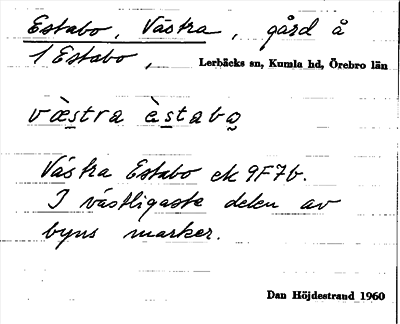 Estabo, Västra, gård å
1 Estabo,
Lerbäcks sn, Kumla hd, Örebro län
væ̀stra  èstabo
Västra Estabo ek 9F7b.
I västligaste delen av
byns marker.
Dan Höjdestrand 1960